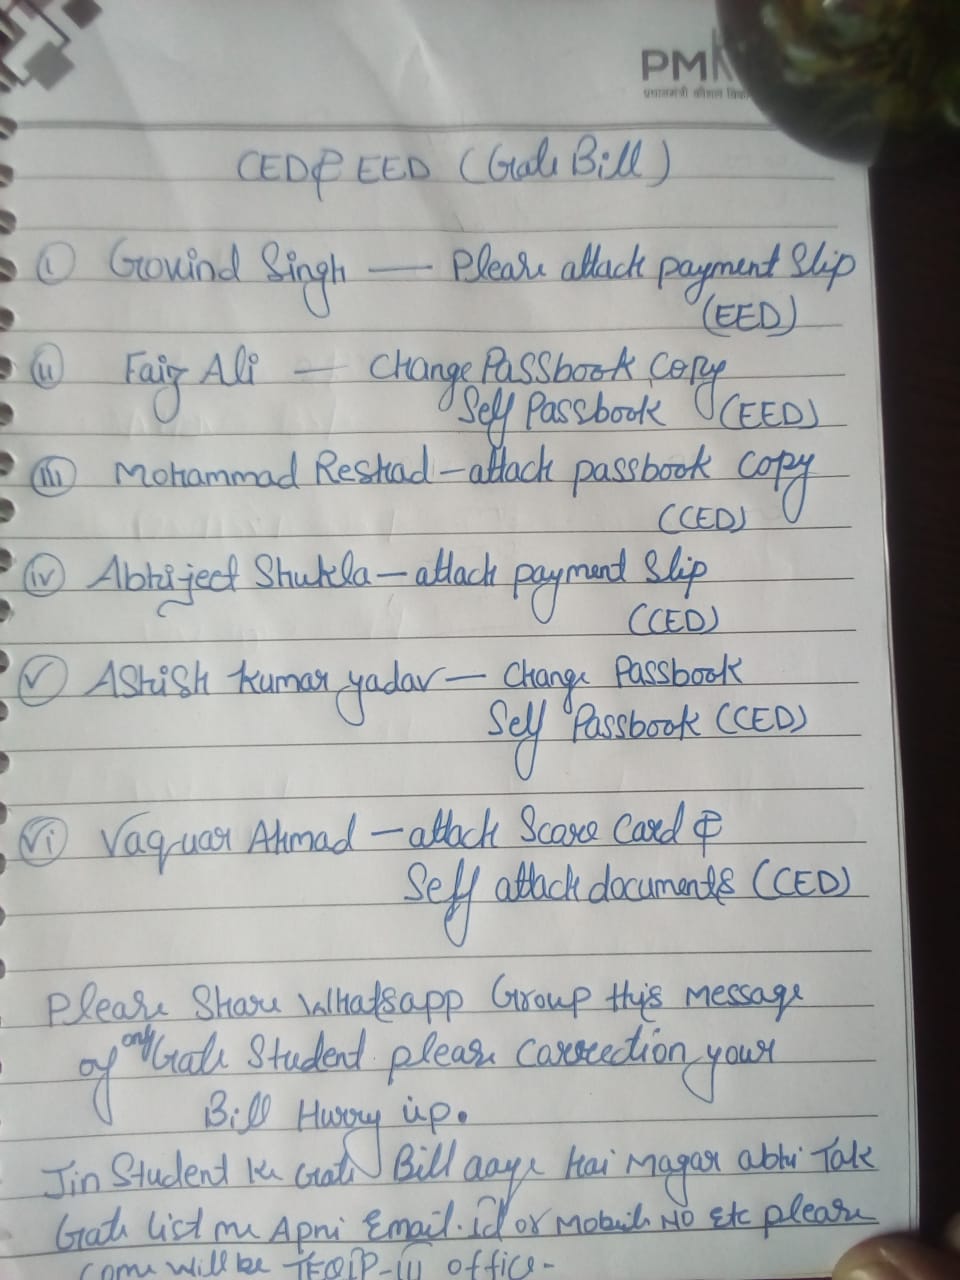 PMK
प्रधानमंत्री कौशल विका
CED & EED (Gate Bill)
(i) Govind Singh — Please attach payment Slip
(EED)
(ii) Faiz Ali — Change Passbook Copy
Self Passbook (EED)
(iii) Mohammad Reshad – attach passbook Copy
(CED)
(iv) Abhijeet Shukla – attach payment Slip
(CED)
(v) Ashish Kumar yadav — Change Passbook
Self Passbook (CED)
(vi) Vaquar Ahmad – attach Score Card &
Self attach documents (CED)
Please Share Whatsapp Group this message
of only Gate Student please correction your
Bill Hurry up.
Jin Student ke Gate Bill aaye hai magar abhi Tak
Gate list me Apni Email.id or Mobile NO Etc please
come will be TEQIP-III office-